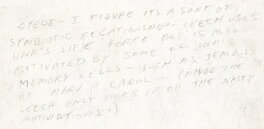 LIEGE - I FIGURE ITS A SORT OF
SYMBIOTIC RELATIONSHIP - LEECH USES
UNA'S LIFE FORCE BUT IS ALSO
MOTIVATED BY SOME OF UNA'S
MEMORY CELLS - SUCH AS JEALOUSY
OF MARV & CAROL - (MAYBE THE
LEECH ONLY PICKS UP ON THE NASTY
MOTIVATIONS!)